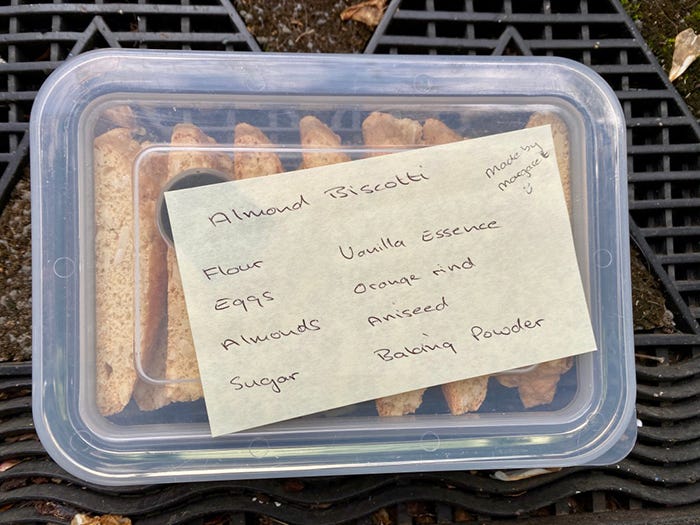 Almond Biscotti
Made by
Margaret
Flour
Eggs
Almonds
Sugar
Vanilla Essence
Orange rind
Aniseed
Baking Powder